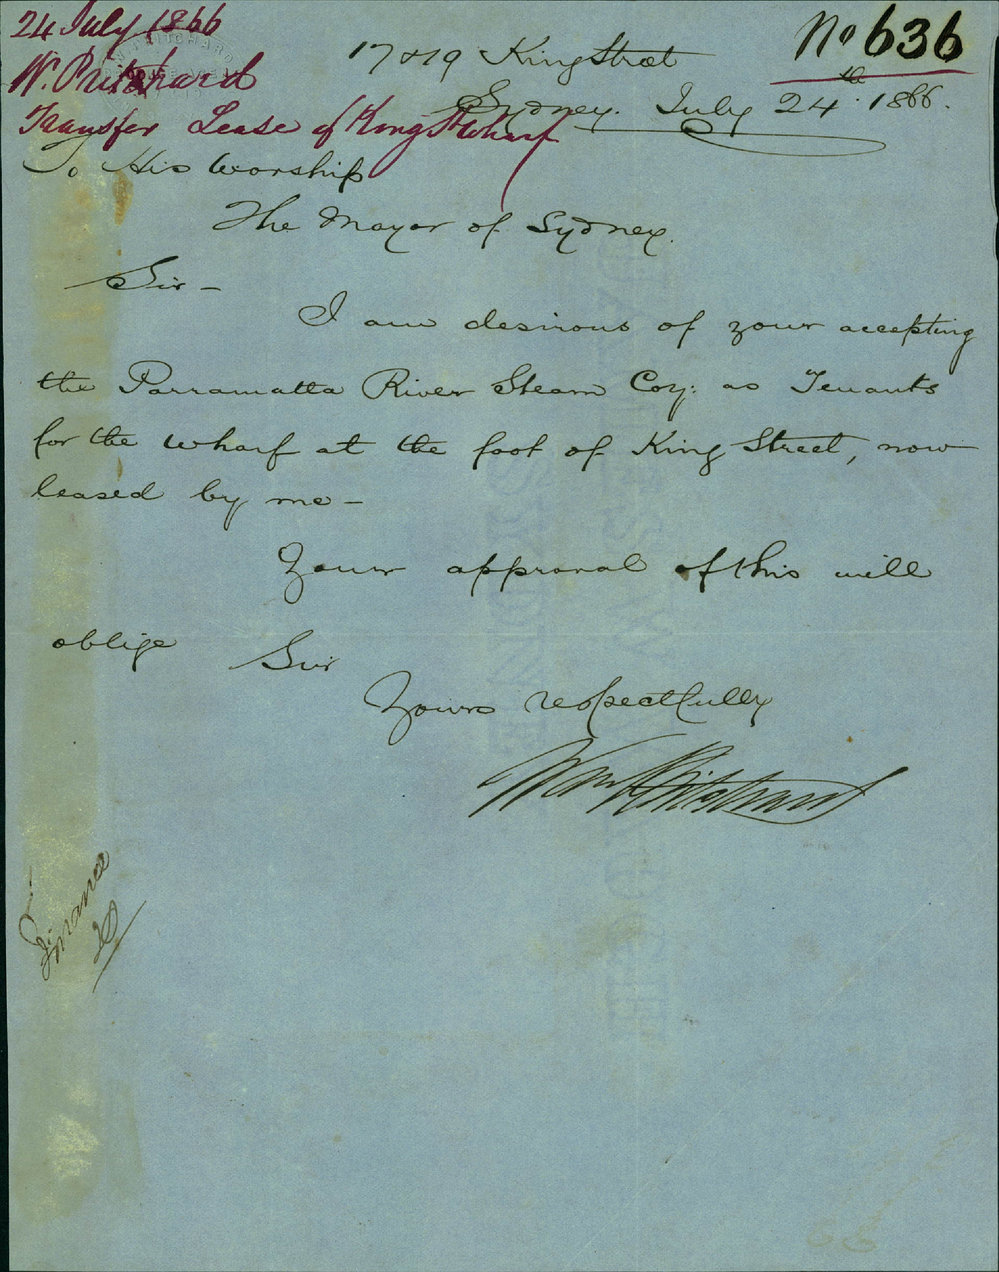 24 July 1866
W. Pritchard
Transfer Lease of King St Wharf
No 636
17 & 19 King Street
Sydney. July 24th. 1866.
To His Worship
The Mayor of Sydney.
Sir –
I am desirous of your accepting
the Parramatta River Steam Coy: as Tenants
for the wharf at the foot of King Street, now
leased by me –
Your approval of this will
oblige Sir
Yours respectfully
Wm Pritchard
Finance